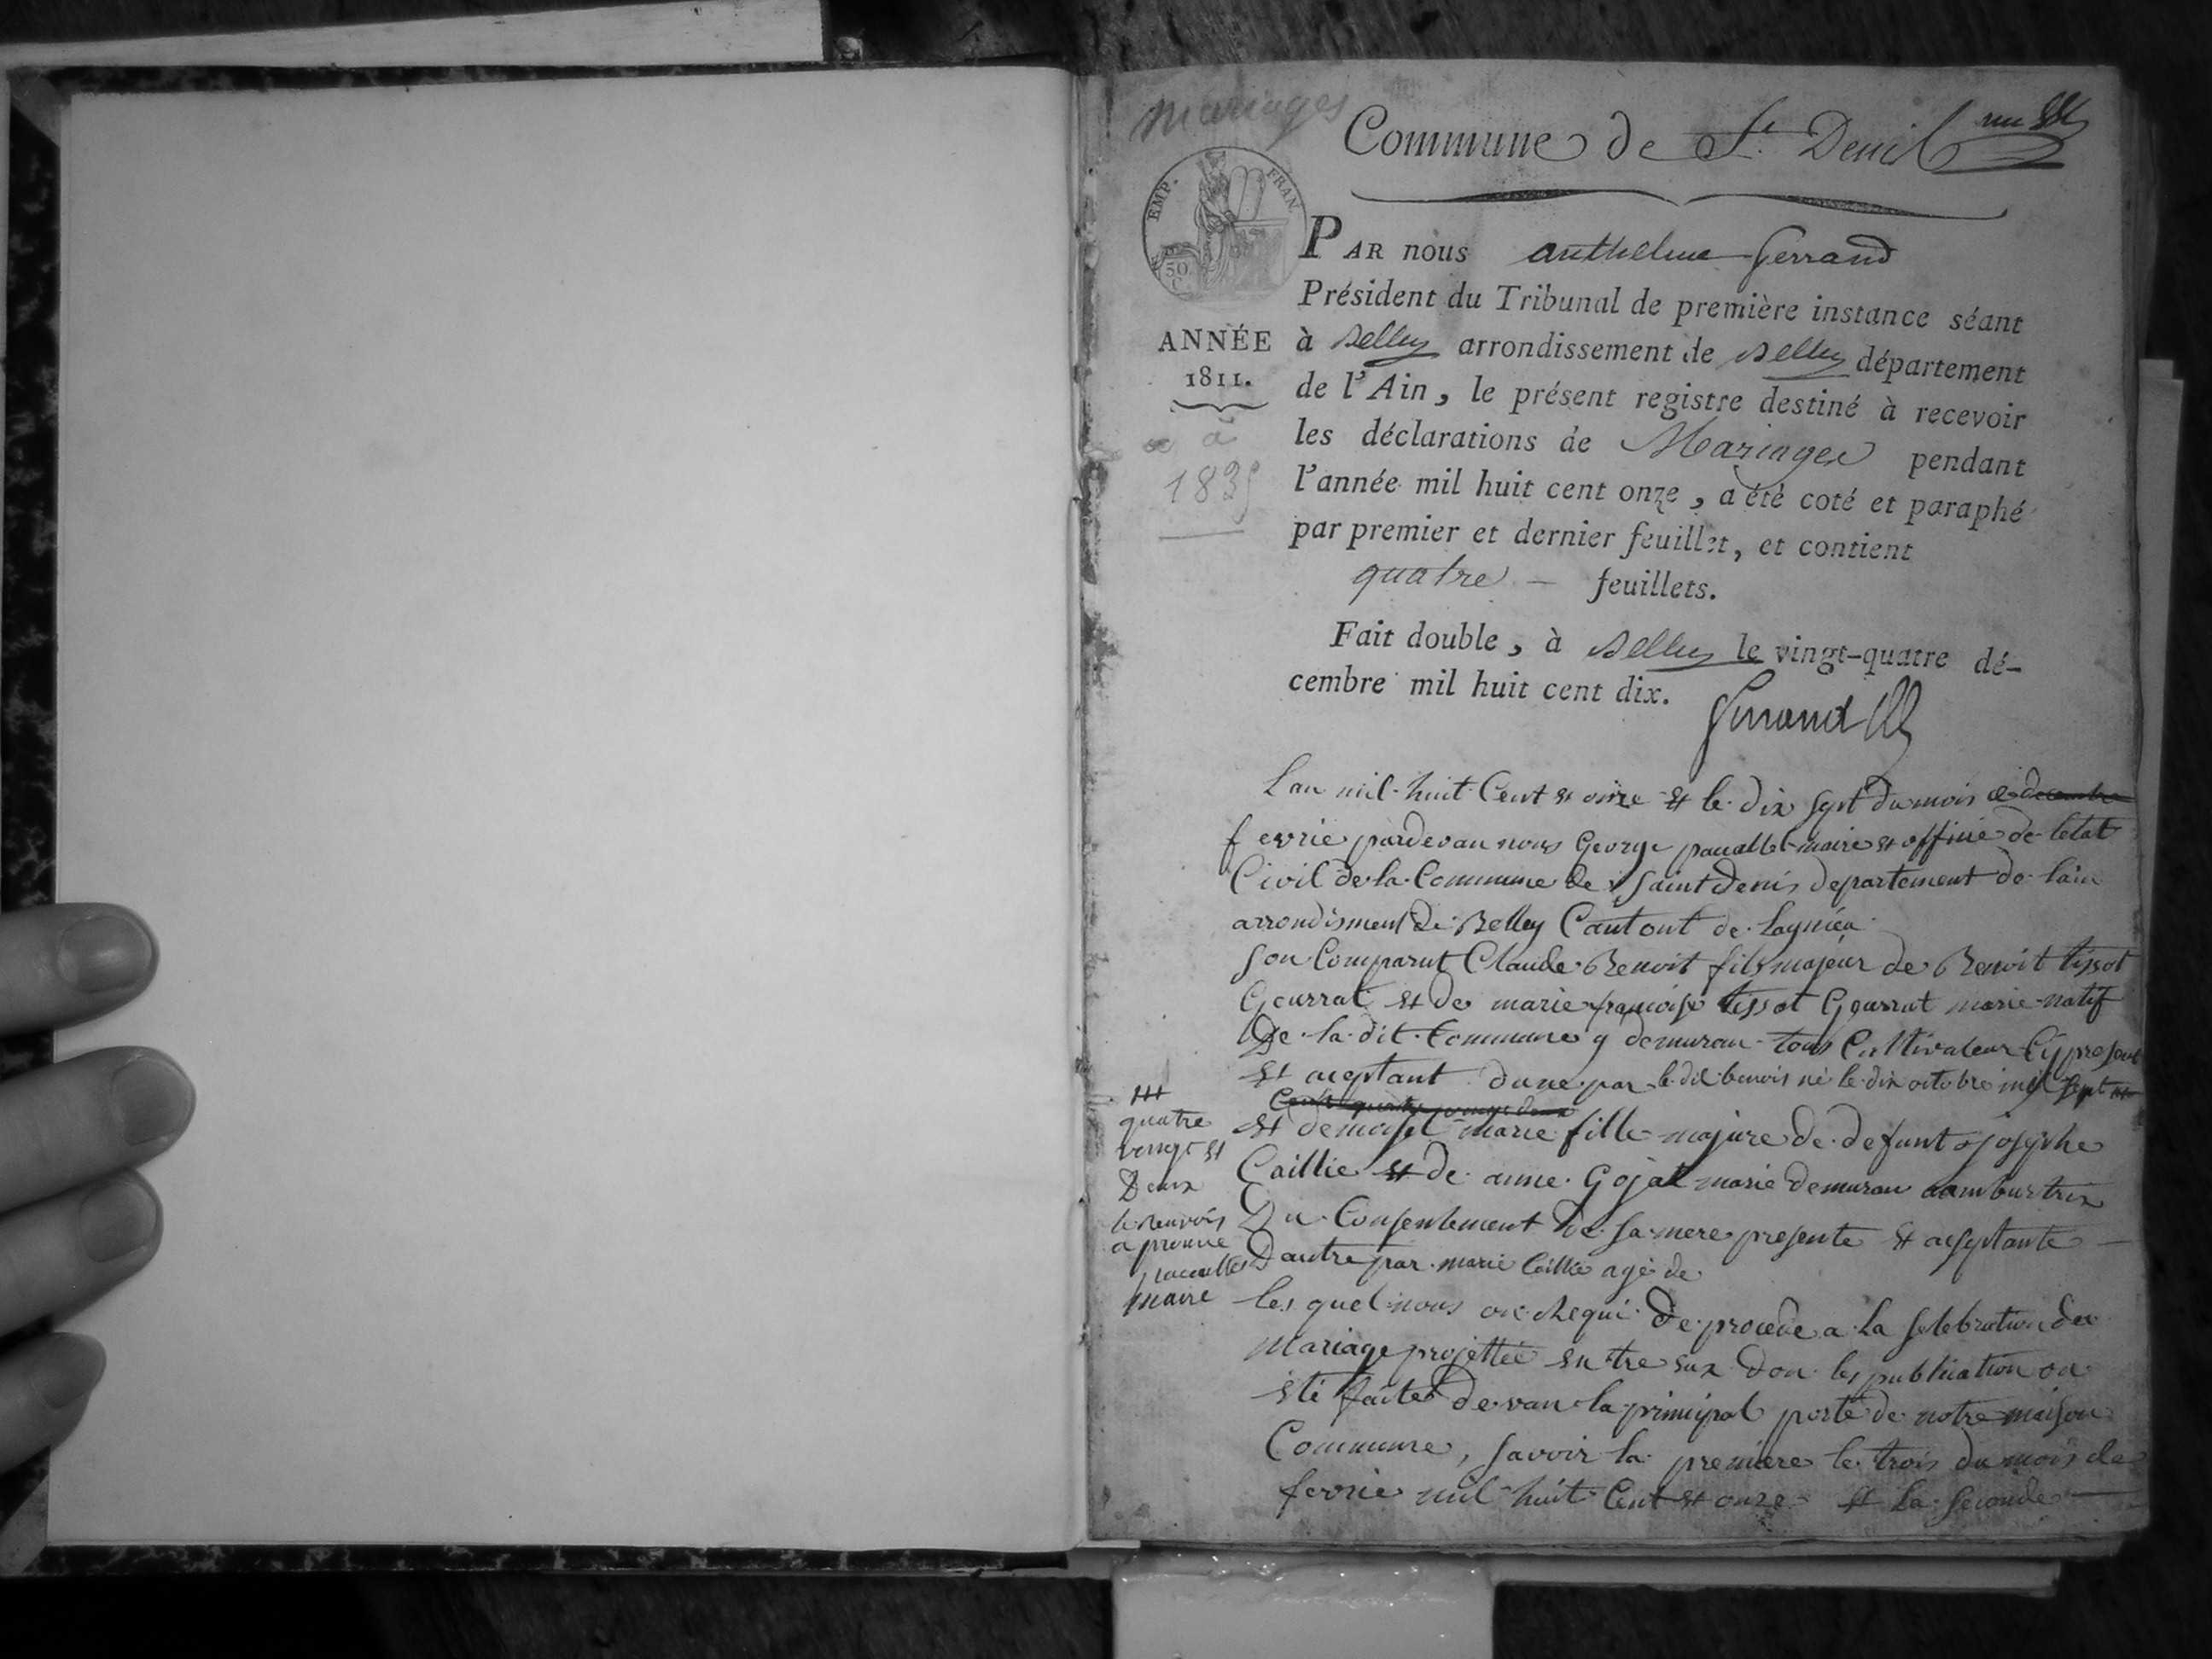 Mariages
Commune de St. Denis
EMP. FRAN.
50
C.
PAR nous anthelme ferrand
Président du Tribunal de première instance séant
ANNÉE
1811.
à
1835
à Belley arrondissement de Belley département
de l'Ain, le présent registre destiné à recevoir
les déclarations de Mariages pendant
l'année mil huit cent onze, a été coté et paraphé
par premier et dernier feuillet, et contient
quatre — feuillets.
Fait double, à Belley le vingt-quatre dé-
cembre mil huit cent dix.
ferrand
Lan mil huit Cent et onze et le dix sept du mois de decembre
fevrie pardevan nous George maire et officié de letat
Civil de la Commune de Saint denis departement de lain
arrondisment de Belley Cantont de Lagnieu
son Comparut Claude Benoit fils majeur de Benoit tissot
Gourrat et de marie françoise tissot Gourrat marie natif
De la dit Commune y demuran tous Cultivateur Cy present
et aceptant dune par le dit benoit né le dix octobre mil sept
Cent quatre vingt deux
et demoisel marie fille majure de defunt josephe
Caillie et de anne Gojat marie demuran aambustrix
Du Consentement de sa mere presente et aseptante —
Dautre par marie Caillie agé de
les quel nous on requi de procede a la selebration du
Mariage projettée entre eux don les publication on
été faites devan la principal porte de notre maison
Commune, savoir la premiere le trois du mois de
fevrie mil huit Cent et onze et la seconde —
quatre
vingt et
Deux
le renvois
aprouve
maire